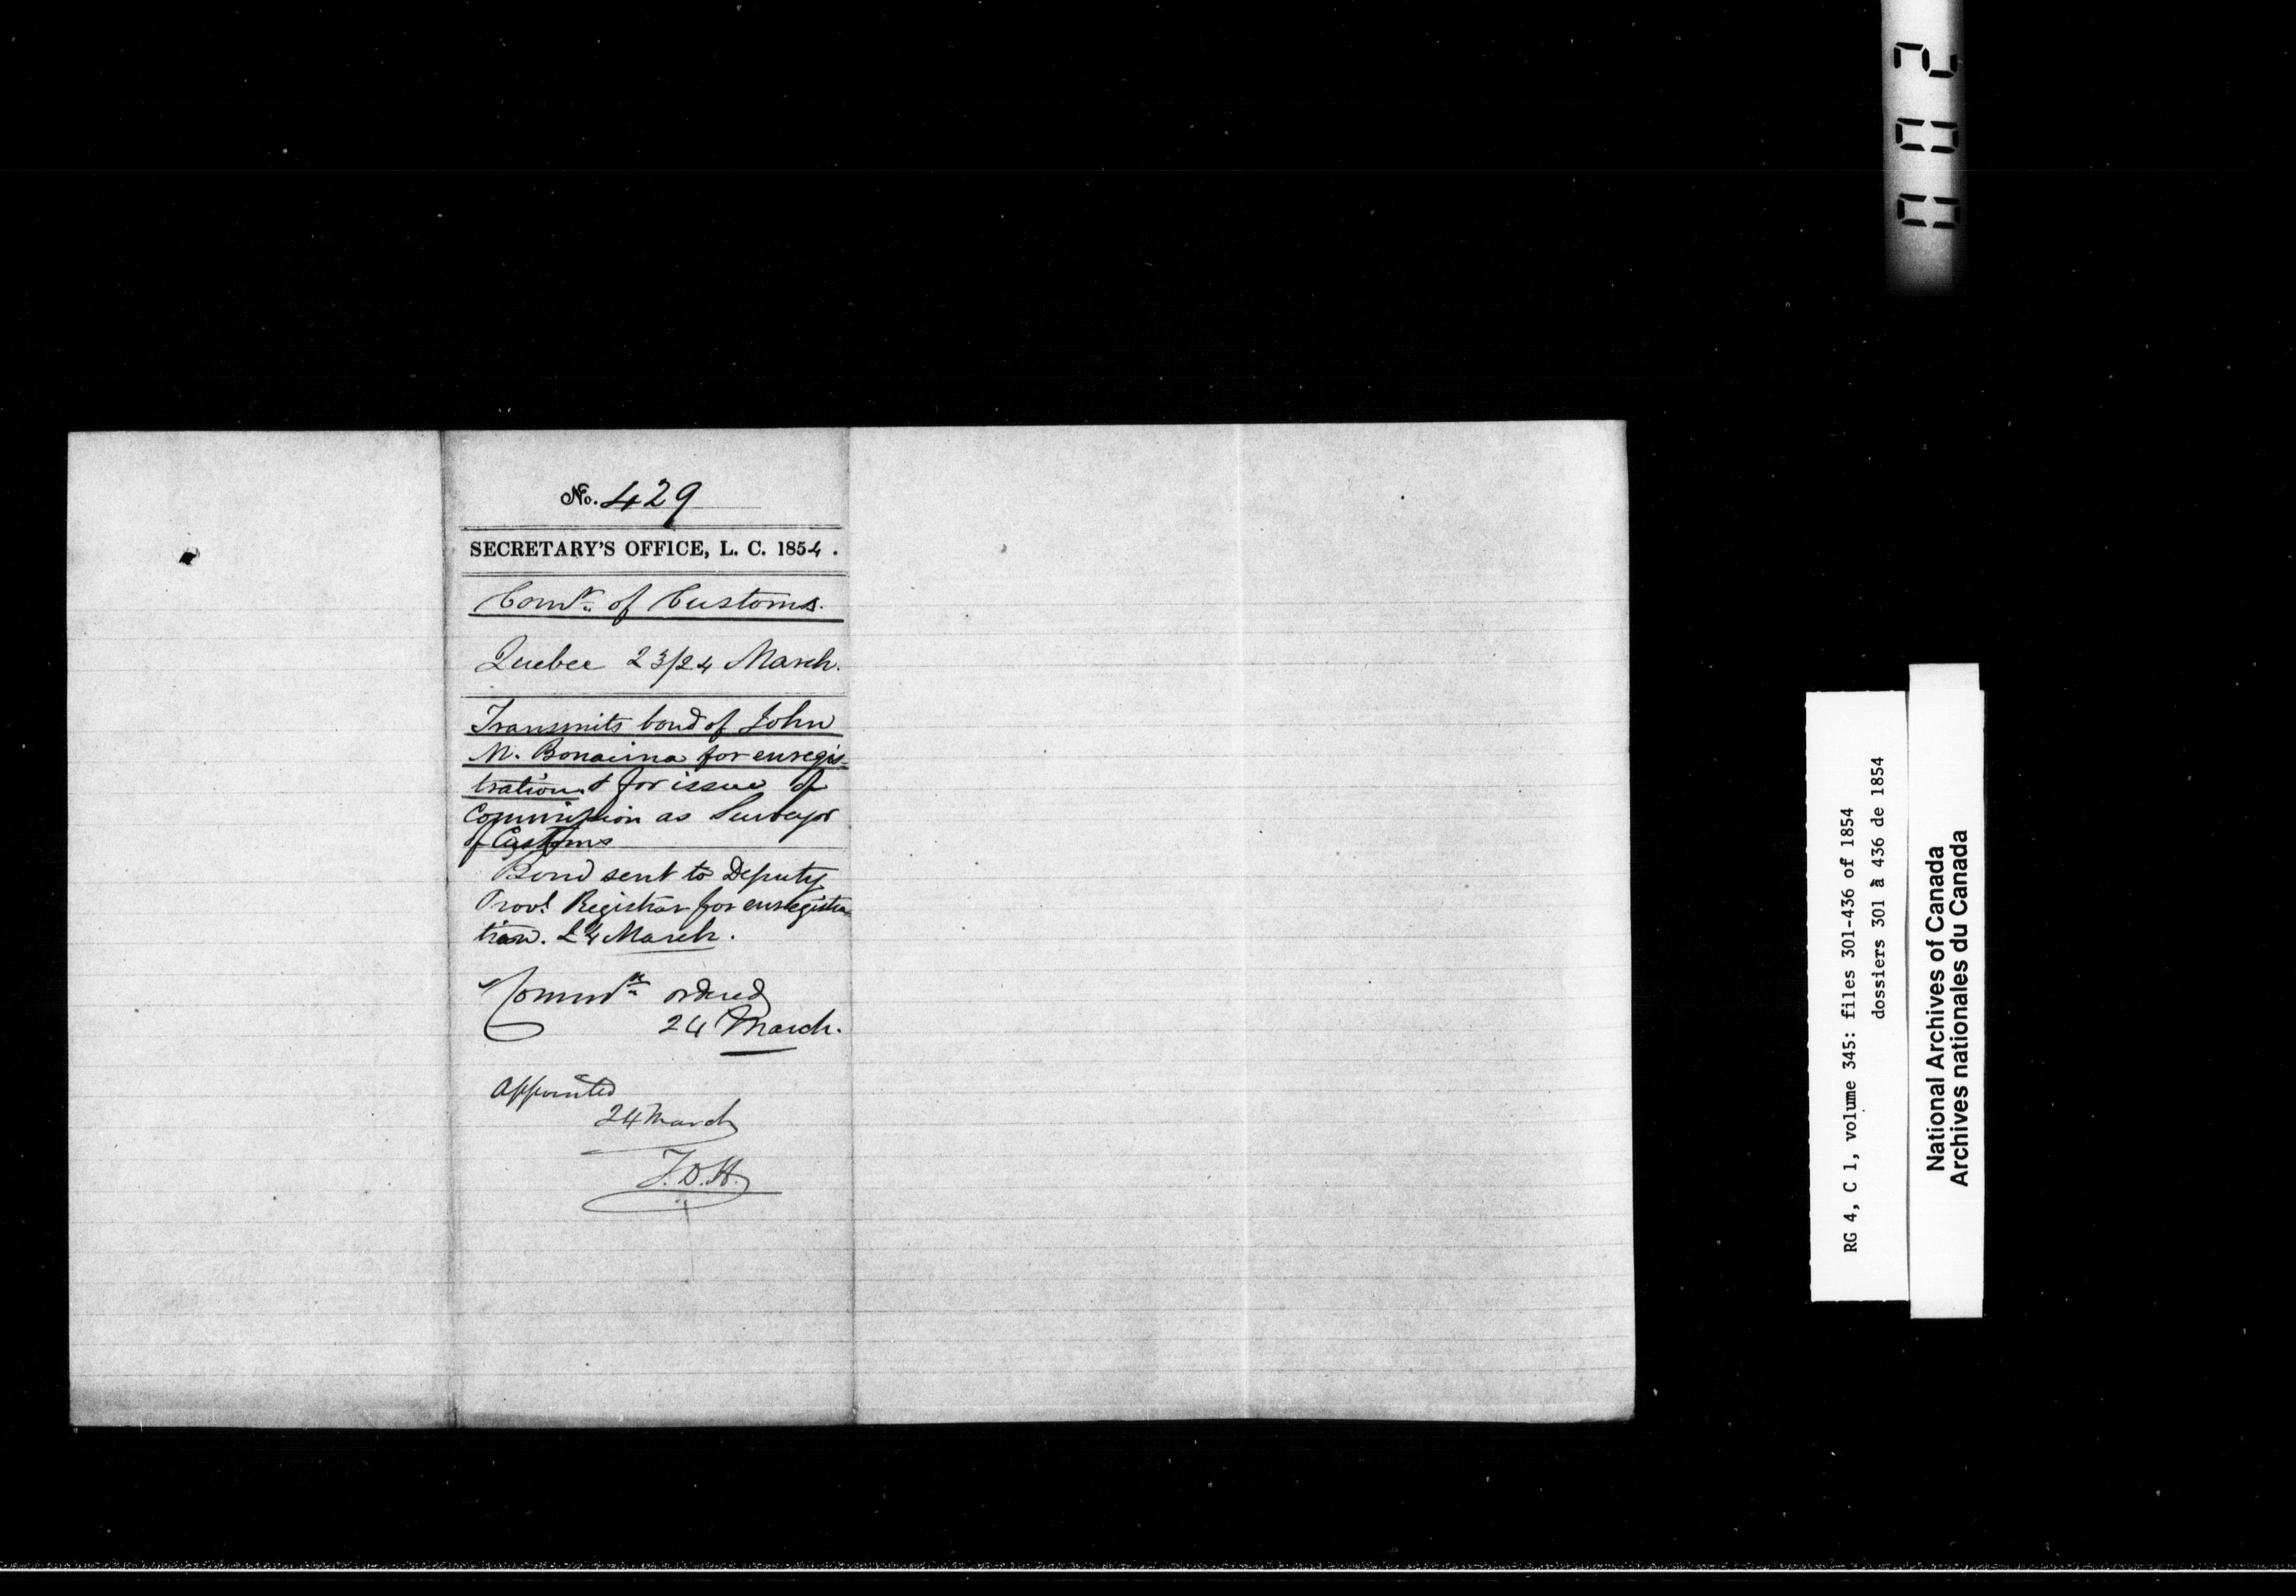 No. 429
SECRETARY'S OFFICE, L. C. 1854.
Comr. of Customs.
Quebec 23/24 March.
Transmits bond of John
M. Bonacina for enregis-
tration & for issue of
Commission as Surveyor
of Customs
Bond sent to Deputy
Provl Registrar for enregistra-
tion. 24 March.
Commn ordered
24 March.
Appointed
24 March
T.D.H.
002
RG 4, C 1, volume 345: files 301-436 of 1854
dossiers 301 à 436 de 1854
National Archives of Canada
Archives nationales du Canada